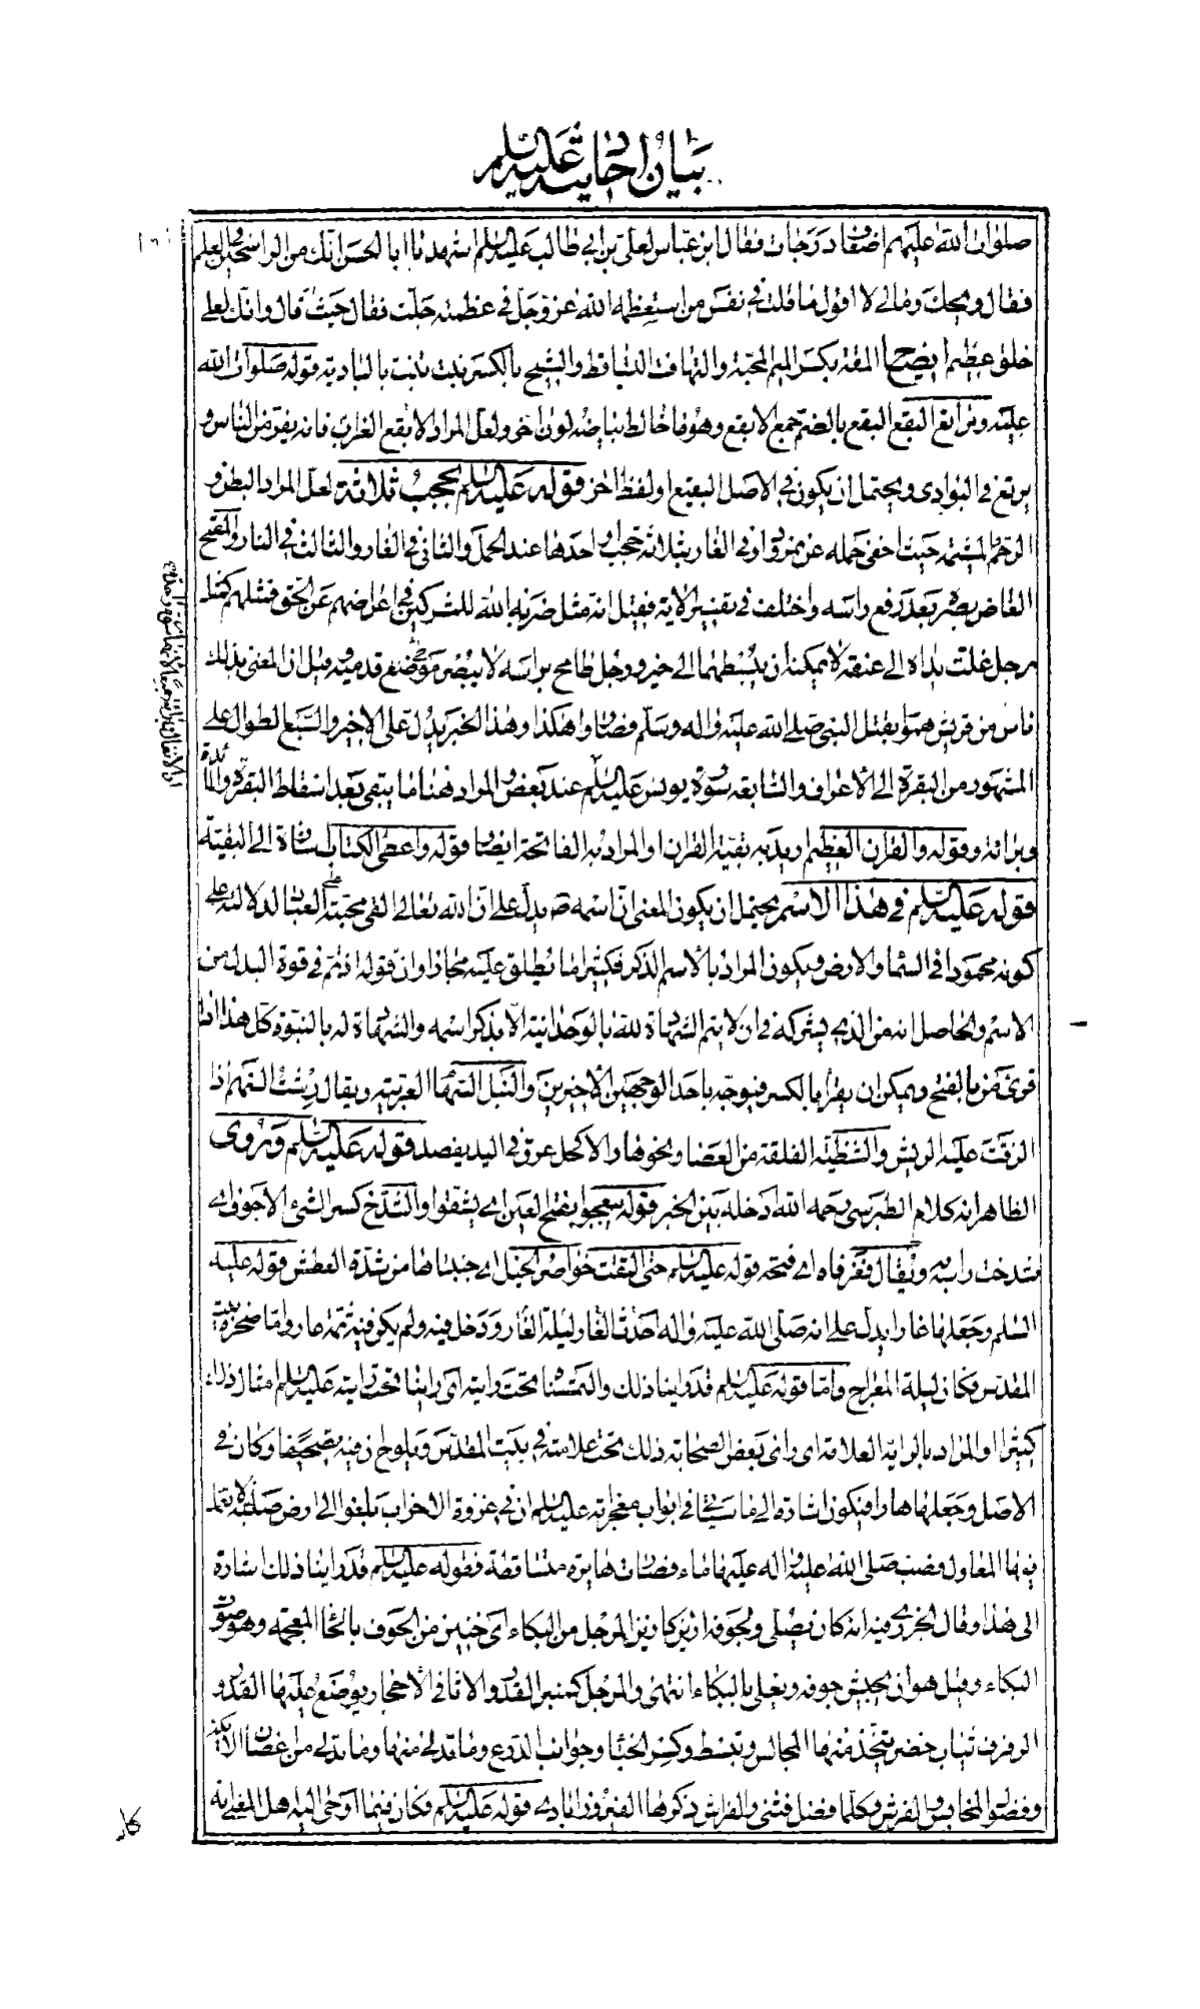 بيان احاديثه عليه السلم
صلوات الله عليهم اضعاف درجات فقال ابن عباس لعلى بن ابي طالب عليه السلم اشهد يا ابا الحسن انك من الراسخين في العلم
فقال ويحك ومالي لا اقول ما قلت في نفس من استعظمه الله عز وجل في عظمته جلت فقال حيث قال وانك لعلى
خلق عظيم ايضاح المقة بكسر الميم المحبة والتهافت التساقط والشيح بالكسر نبت تنبت بالبادية قوله صلوات الله
عليه ومراتع البقع البقع بالضم جمع الابقع وهو ما خالط بياضه لون اخر ولعل المراد الابقع الغراب فانه يفر من الناس و
يرتع في البوادى ويحتمل ان يكون في الاصل البقيع او لفظ اخر قوله عليه السلم بحجب ثلاثة لعل المراد البطن و
الرحم المشيمة حيث اخفى حمله عن نمرود او في الغار بثلاثة حجب او احدها عند الحمل والثاني في الغار والثالث في النار والمقمح
الغاض بصره بعد رفع راسه واختلف في تفسير الاية فقيل انه مثل ضربه الله للمشركين في اعراضهم عن الحق فمثلهم كمثل
رجل غلت يداه الى عنقه لا يمكنه ان يبسطهما الى خير ورجل طامح براسه لا يبصر موضع قدميه وقيل ان المعنى بذلك
ناس من قريش هموا بقتل النبى صلى الله عليه واله وسلم فصاروا هكذا وهذا الخبر يدل على الاخير والسبع الطوال على
المشهور من البقرة الى الاعراف والسابعة سورة يونس عليه السلم عند بعض والمراد هنا ما يبقى بعد اسقاط البقرة والمائدة
وبرائة وقوله والقران العظيم اريد به بقية القران او المراد به الفاتحة ايضا وقوله واعطى الكتاب اشارة الى البقية
قوله عليه السلم في هذا الاسم يحتمل ان يكون المعنى ان اسمه ص يدل على ان الله تعالى القى محبته على العباد لدلالته على
كونه محمودا في السماء والارض ويكون المراد بالاسم الذكر فكثيرا ما يطلق عليه مجازا وان قوله اذ تم في قوة البدل من
الاسم والحاصل انه من الذي يشركه في ان لا يتم الشهادة لله بالوحدانية الا بذكر اسمه والشهادة له بالنبوة كل هذا اذا
قرئ من بالفتح ويمكن ان يقرأ بالكسر فيوجه باحد الوجهين الاخيرين والنبل السهام العربية ويقال رشت السهم اذا
الزقت عليه الريش والشظية الفلقة من العصا ونحوها والاكحل عرق في اليد يفصد قوله عليه السلم وروى
الظاهر انه كلام الطبرسي رحمه الله ادخله بين الخبر قوله يبعجوا بفتح العين اي يشقوا والشدخ كسر الشئ الاجوف اي
شدخت راسه ويقال فغرفاه اي فتحه قوله عليه السلم حتى التقت خواصر الخيل اي جنبتاها من شدة العطش قوله عليه
السلم وجعلها غارا يدل على انه صلى الله عليه واله حدث الغار ليلة الغار ودخل فيه ولم يكن فيه ثمة غار واما صخرة بيت
المقدس فكان ليلة المعراج واما قوله عليه السلم قد راينا ذلك والتمسنا تحت رايته اى راينا تحت رايته عليه السلم امثال ذلك
كثيرا او المراد بالراية العلامة اى راى بعض الصحابة ذلك تحت علامته في بيت المقدس ويلوح لي فيه تصحيفا وكان في
الاصل وجعلها هارا فيكون اشارة الى ما سيجئ في ابواب معجزاته عليه السلم ان في غزوة الاحزاب بلغوا الى ارض صلبة لا تعمل
فيها المعاول فصب صلى الله عليه واله عليها ماء فصارت هايرة متساقطة فقوله عليه السلم قد راينا ذلك اشارة
الى هذا وقال الجزري فيه انه كان يصلى ولجوفه ازيز كازيز المرجل من البكاء اى خنين من الجوف بالخاء المعجمة وهو صوت
البكاء وقيل هو ان يجيش جوفه ويغلى بالبكاء انتهى والمرجل كمنبر القدر والاثافى الاحجار يوضع عليها القدر و
الرفرف ثياب خضر يتخذ منها المجالس وتبسط وكسر الخباء وجوانب الدرع وما تدلى منها وما تدلى من اغصان الايكة
وفضول المحابس والفرش وكلما فضل فثنى والفراش ذكرها الفيروزابادي قوله عليه السلم فكان فيما اوحى اليه هل الملقى اية
كا